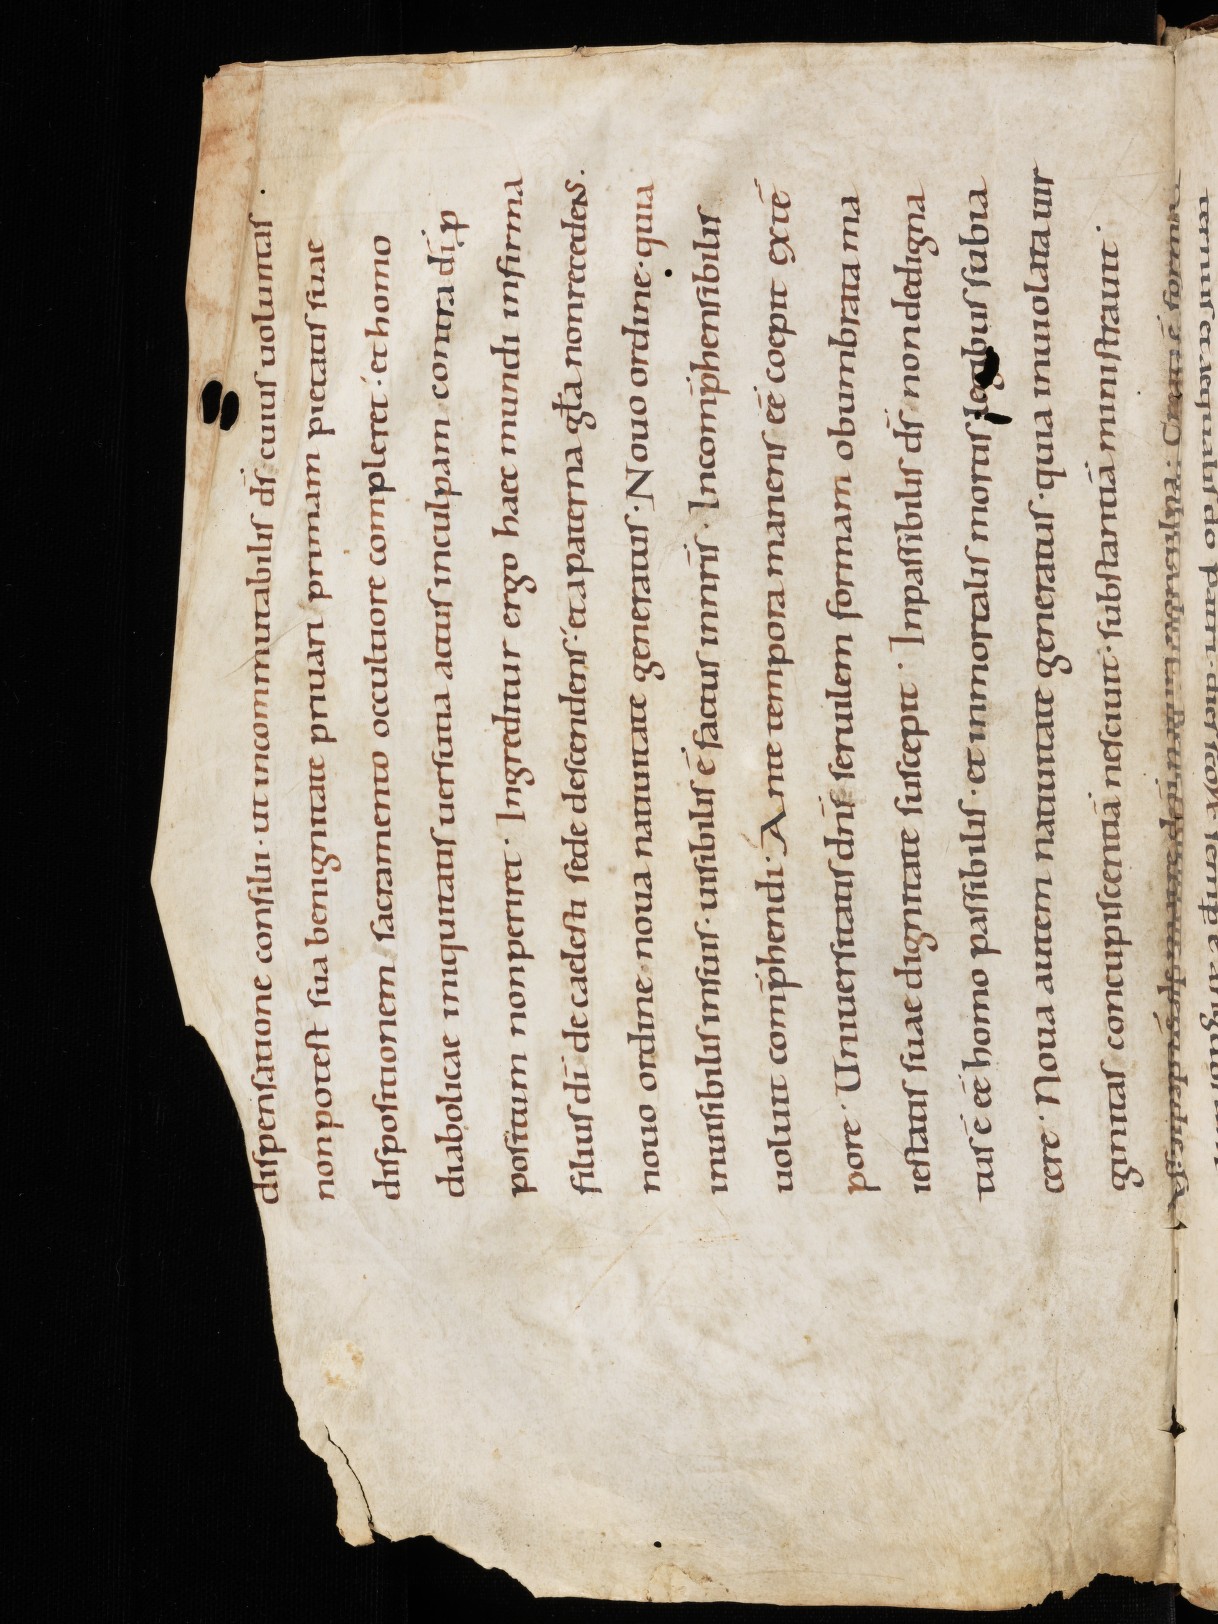 dispensatione consilii · ut incommutabilis d̅s̅ cuius uoluntas
non potest sua benignitate priuari primam pietatis suae
dispositionem sacramento occultiore compleret · et homo
diabolicae iniquitatis uersutia actus in culpam contra d̅i̅ p̱
positum non periret · Ingreditur ergo haec mundi infirma
filius d̅i̅ de caelesti sede descendens · et a paterna gl̅a non recedens .
nouo ordine noua natiuitate generatus · Nouo ordine · quia
inuisibilis in suis · uisibilis e̅ factus in n̅r̅is · Incomp̅hensibilis
uoluit comp̅hendi · Ante tempora manens e̅e̅ coepit ex te̅
pore · Uniuersitatis dn̅s seruilem formam obumbrata ma
iestatis suae dignitate suscepit · Inpassibilis d̅s̅ non dedigna
tus e̅ e̅e̅ homo passibilis · et inmortalis mortis legibus subia
cere · Noua autem natiuitate generatus · quia inuiolata uir
ginitas concupiscentia̅ nesciuit · substantia̅ ministrauit ·